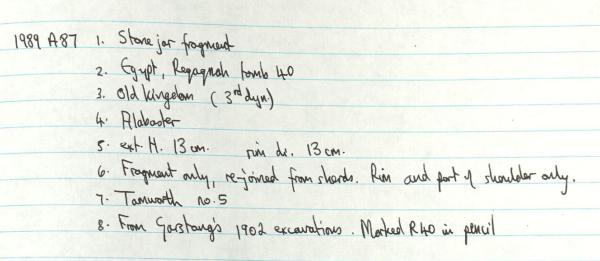 1989 A87 1. Stone jar fragment
2. Egypt, Reqaqnah tomb 40
3. Old Kingdom (3rd dyn)
4. Alabaster
5. ext. H. 13 cm. rim di. 13 cm.
6. Fragment only, re-joined from sherds. Rim and part of shoulder only.
7. Tamworth no. 5
8. From Garstang's 1902 excavations. Marked R40 in pencil